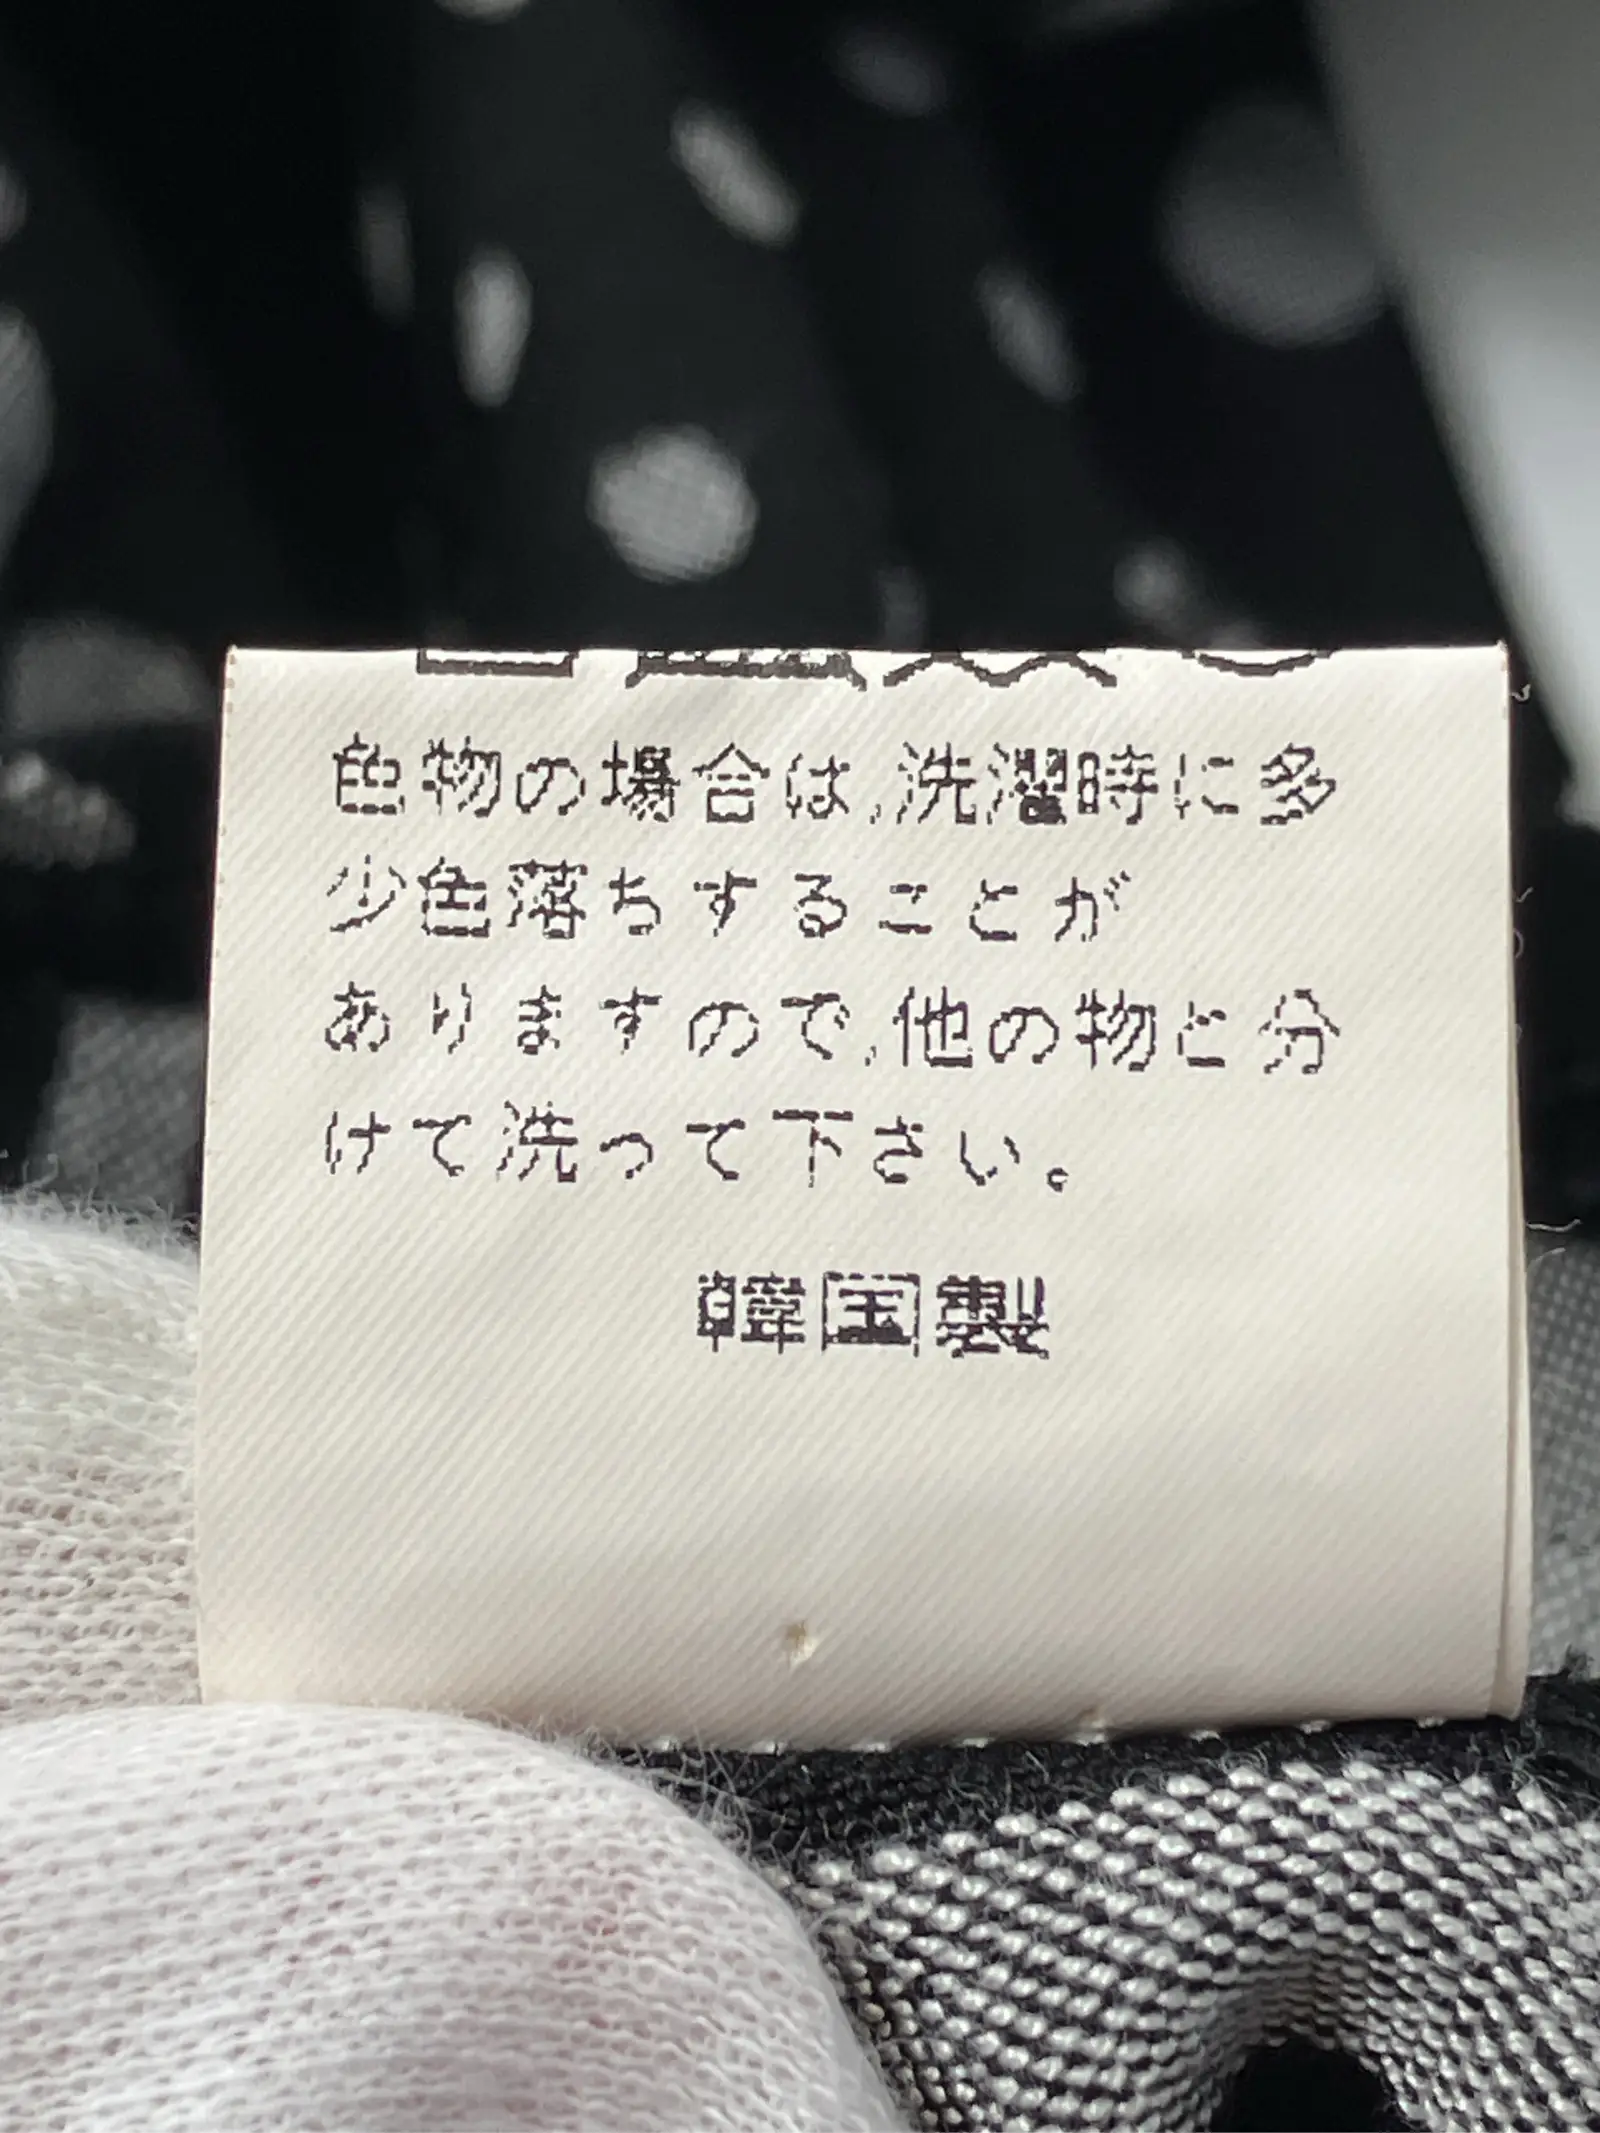 色物の場合は,洗濯時に多
少色落ちすることが
ありますので,他の物と分
けて洗って下さい。
韓国製